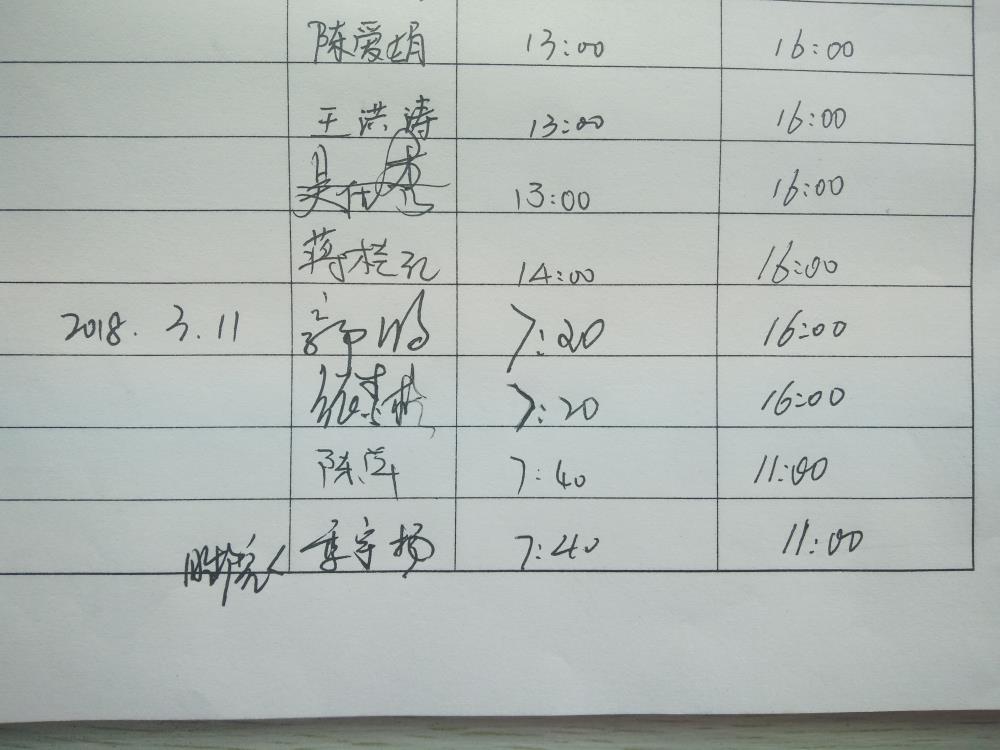 陈爱娟 13:00 16:00
王洪涛 13:00 16:00
吴 13:00 16:00
蒋桂孔 14:00 16:00
2018.3.11 7:20 16:00
7:20 16:00
陈萍 7:40 11:00
季宇扬 7:40 11:00